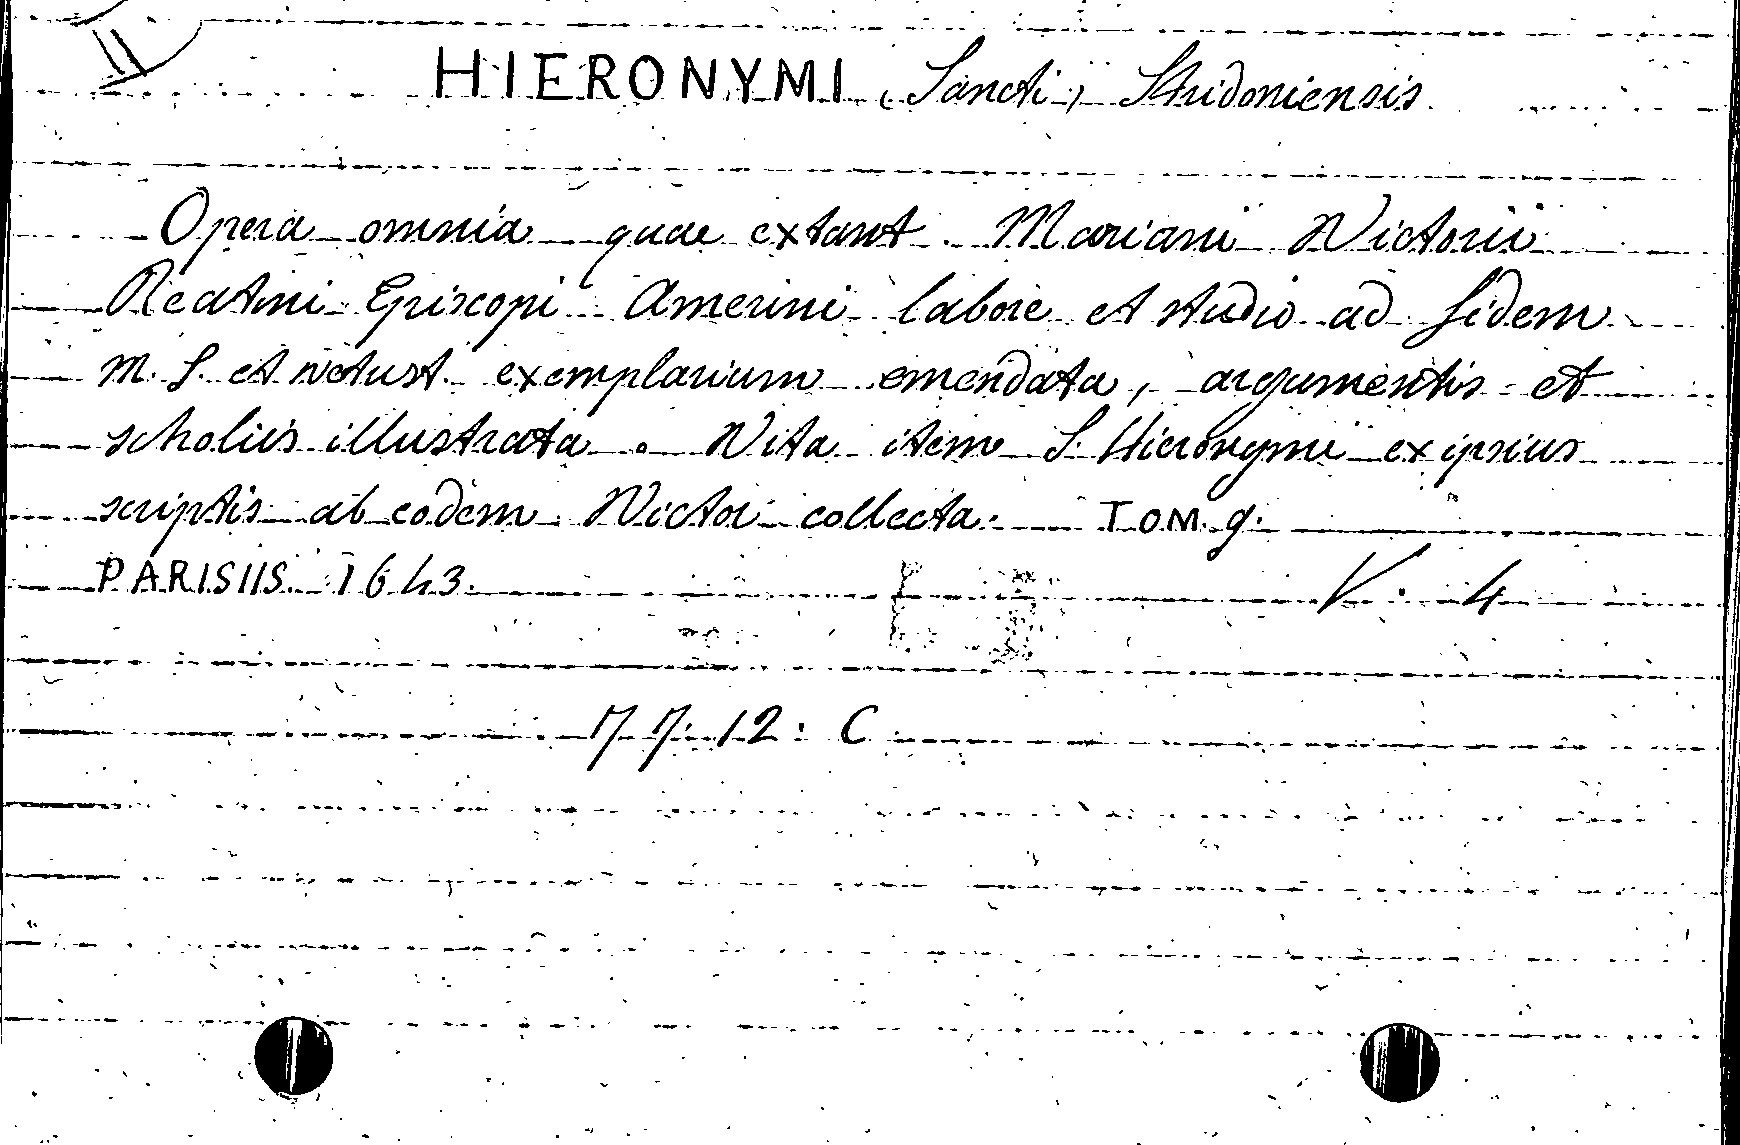 HIERONYMI (Sancti) Stridoniensis
Opera omnia quae extant. Mariani Victorii
Reatini Episcopi Amerini labore et studio ad fidem
M. S. et vetust. exemplarium emendata, argumentis et
scholiis illustrata. Vita item S. Hieronymi ex ipsius
scriptis ab eodem Victor collecta. TOM. 9.
PARISIIS 1643. V. 4
77.12.C